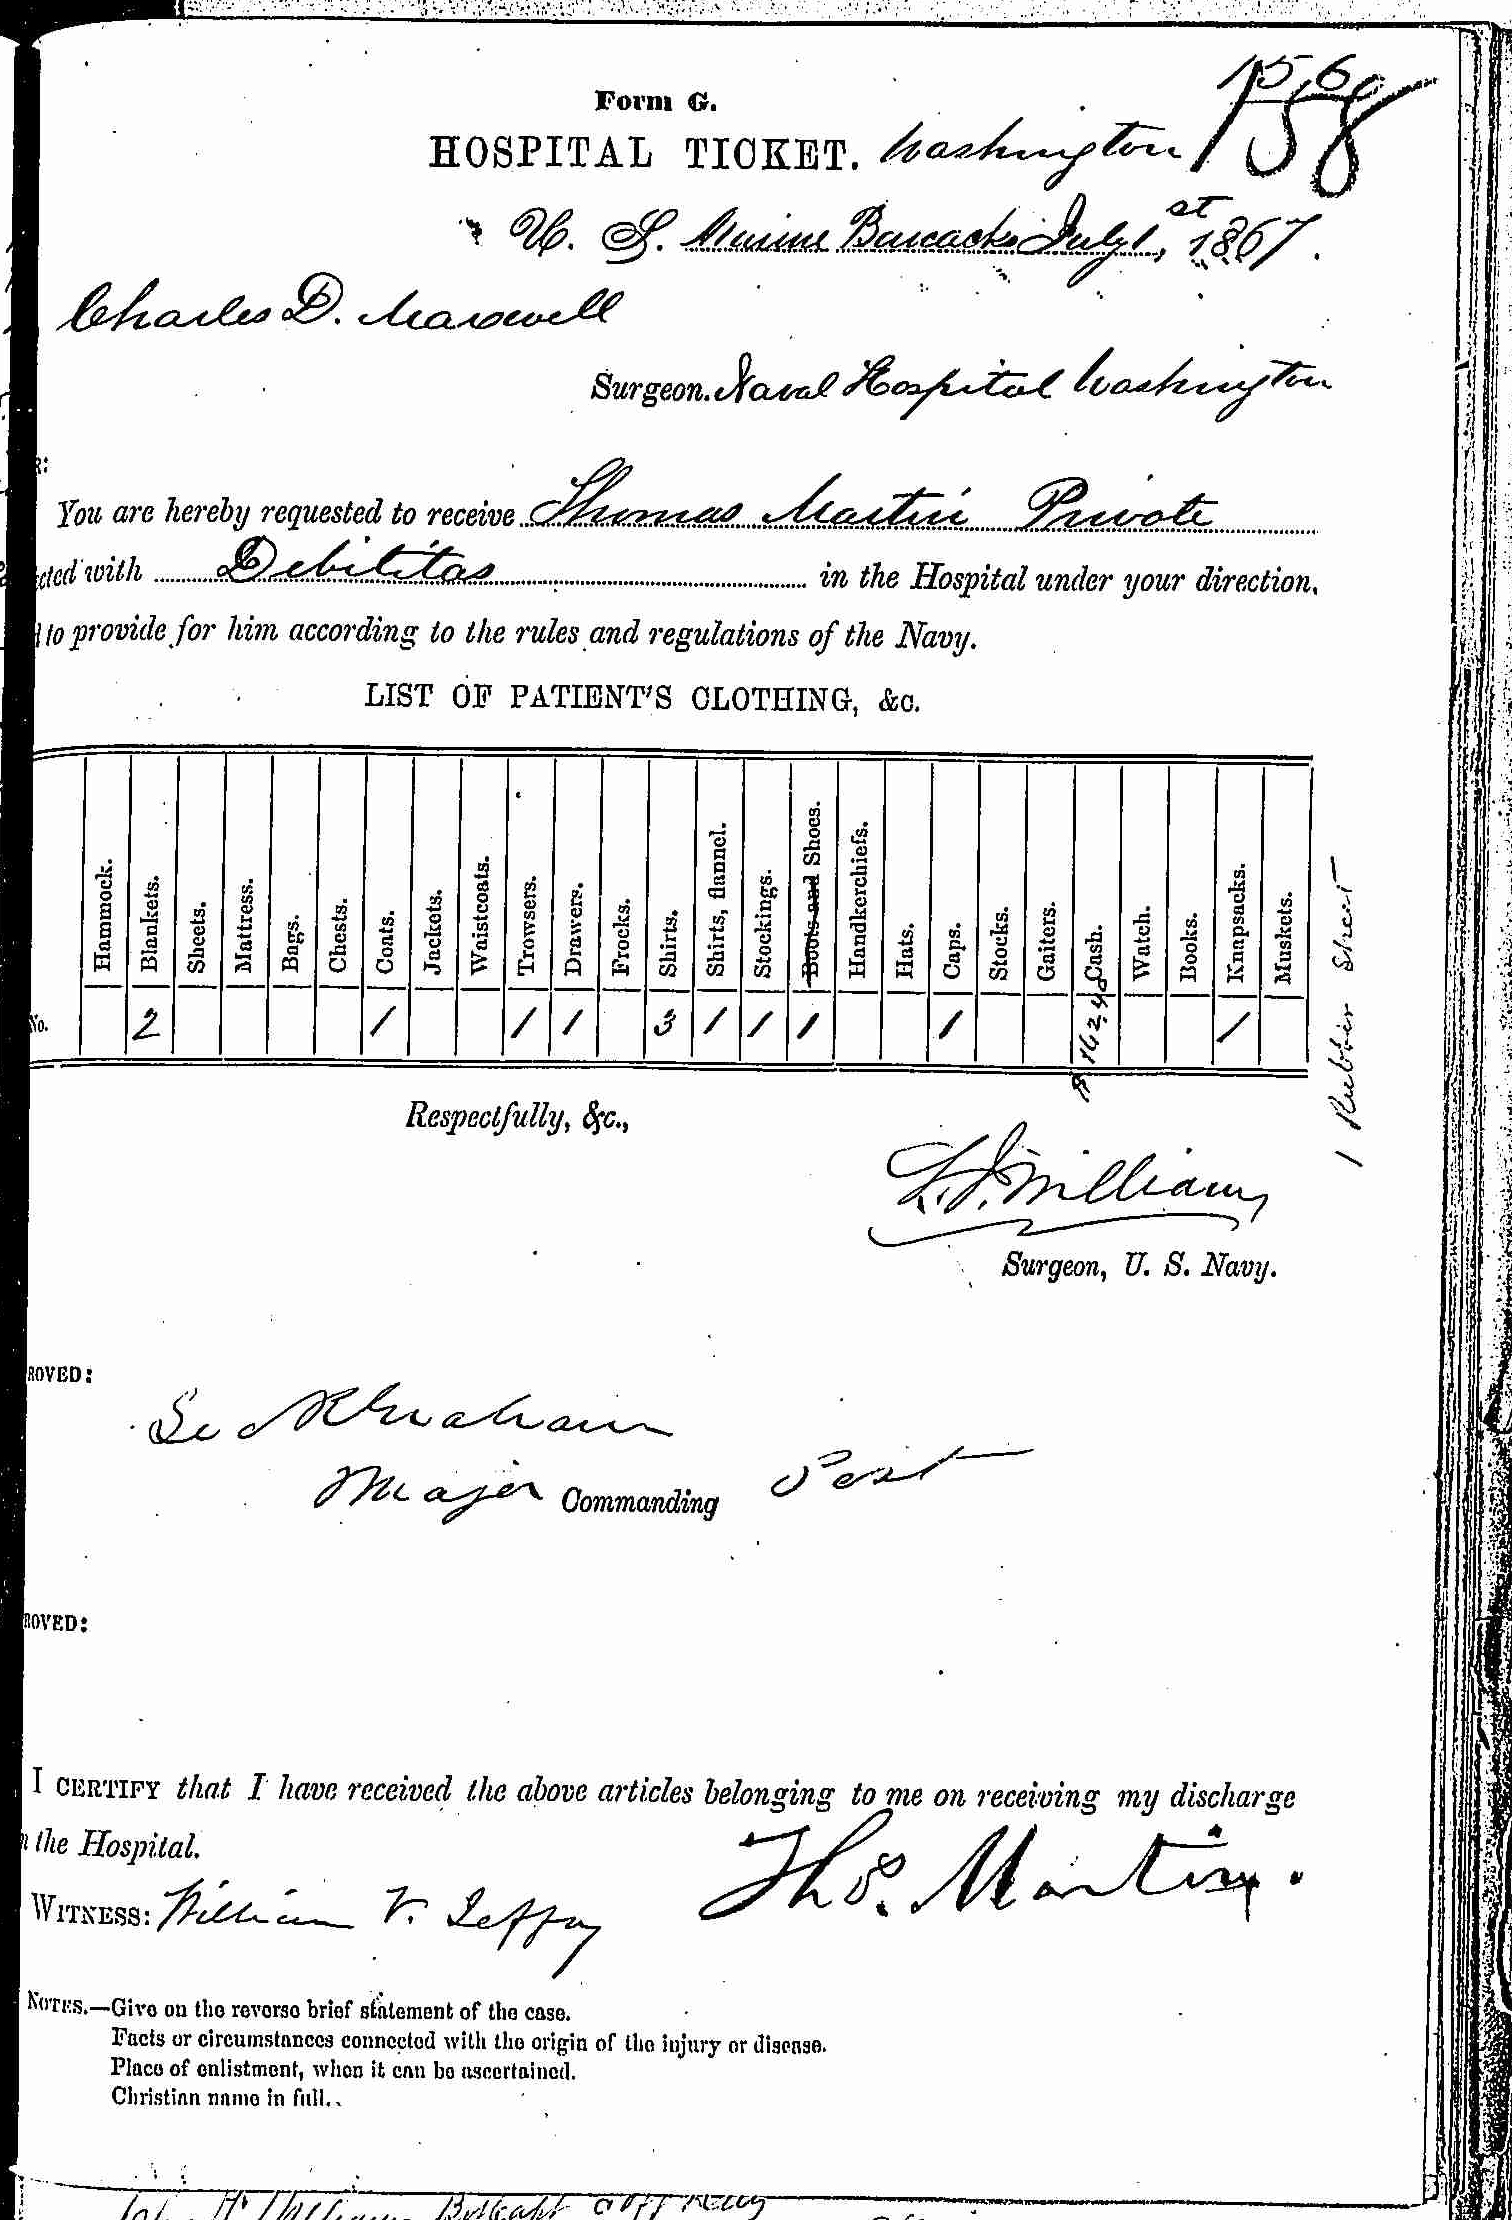 Form G.
156
158
HOSPITAL TICKET. Washington
U. S. Marine Barracks July 1st, 1867.
Charles D. Maxwell
Surgeon. Naval Hospital Washington
R:
You are hereby requested to receive Thomas Martin Private
cted with Debilitas in the Hospital under your direction,
to provide for him according to the rules and regulations of the Navy.
LIST OF PATIENT'S CLOTHING, &c.
Hammock. Blankets. Sheets. Mattress. Bags. Chests. Coats. Jackets. Waistcoats. Trowsers. Drawers. Frocks. Shirts. Shirts, flannel. Stockings. Boots and Shoes. Handkerchiefs. Hats. Caps. Stocks. Gaiters. Cash. Watch. Books. Knapsacks. Muskets.
No. 2 1 1 1 3 1 1 1 1 $162.48 1
1 Rubber Sheet
Respectfully, &c.,
Williams
Surgeon, U. S. Navy.
ROVED:
Graham
Major Commanding Post
ROVED:
I CERTIFY that I have received the above articles belonging to me on receiving my discharge
the Hospital.
Thos. Martin.
WITNESS: William V.
NOTES.—Give on the reverse brief statement of the case.
Facts or circumstances connected with the origin of the injury or disease.
Place of enlistment, when it can be ascertained.
Christian name in full.